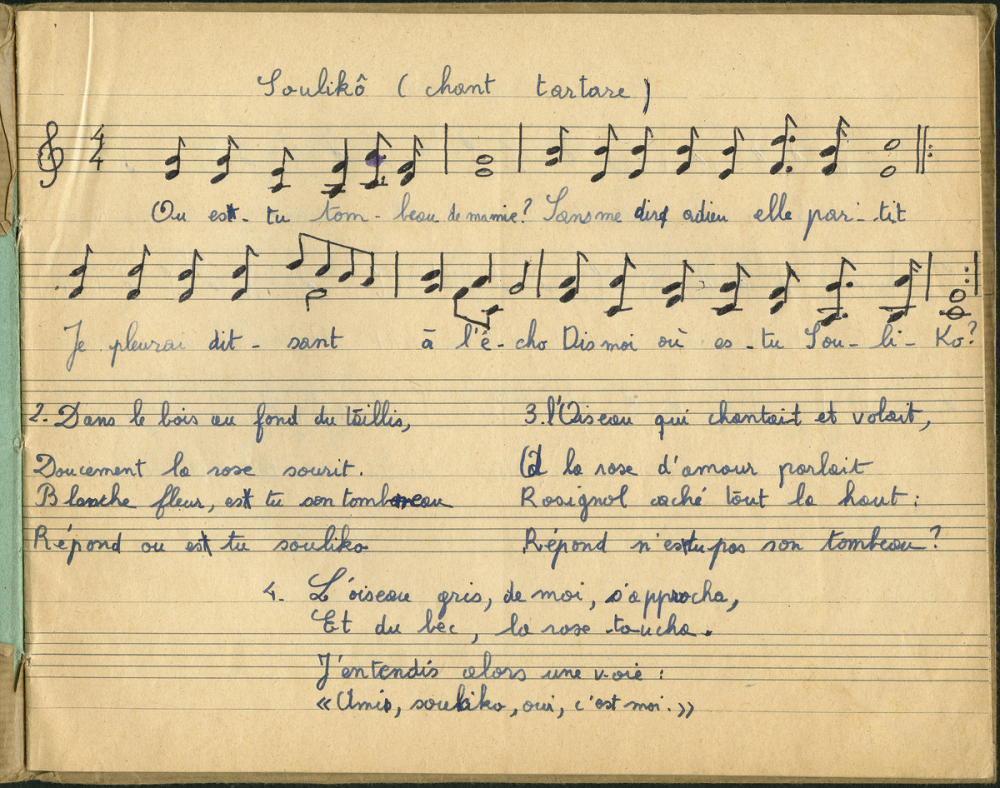 Soulikô ( chant tartare )
4
4
Ou est - tu tom - beau de mamie ? Sans me dire adieu elle par - tit
Je pleurai dit - sant à l'é - cho Dis moi où es - tu Sou - li - Ko ?
2. Dans le bois au fond du taillis,
Doucement la rose sourit.
Blanche fleur, est tu son tombeau
Répond ou est tu souliko
3. l'Oiseau qui chantait et volait,
A la rose d'amour parlait
Rosignol caché tout la haut :
Répond n'es tu pas son tombeau ?
4. L'oiseau gris, de moi, s'approcha,
Et du bec, la rose toucha.
J'entendis alors une voie :
« Amis, souliko, oui, c'est moi. »